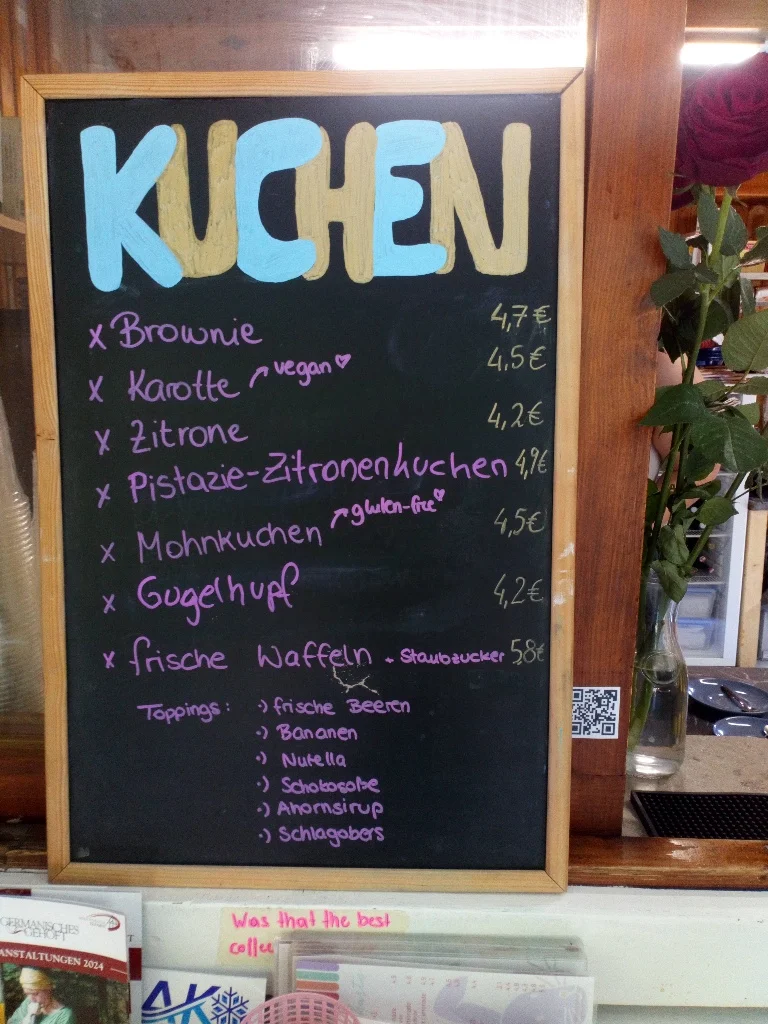 KUCHEN
x Brownie 4,7€
x Karotte ↗ vegan ♡ 4,5€
x Zitrone 4,2€
x Pistazie-Zitronenkuchen 4,9€
x Mohnkuchen ↗ gluten-free ♡ 4,5€
x Gugelhupf 4,2€
x frische Waffeln + Staubzucker 5,8€
Toppings: :) frische Beeren
:) Bananen
:) Nutella
:) Schokosoße
:) Ahornsirup
:) Schlagobers
Was that the best
coffee
GERMANISCHES
GEHÖFT
ANSTALTUNGEN 2024
AK